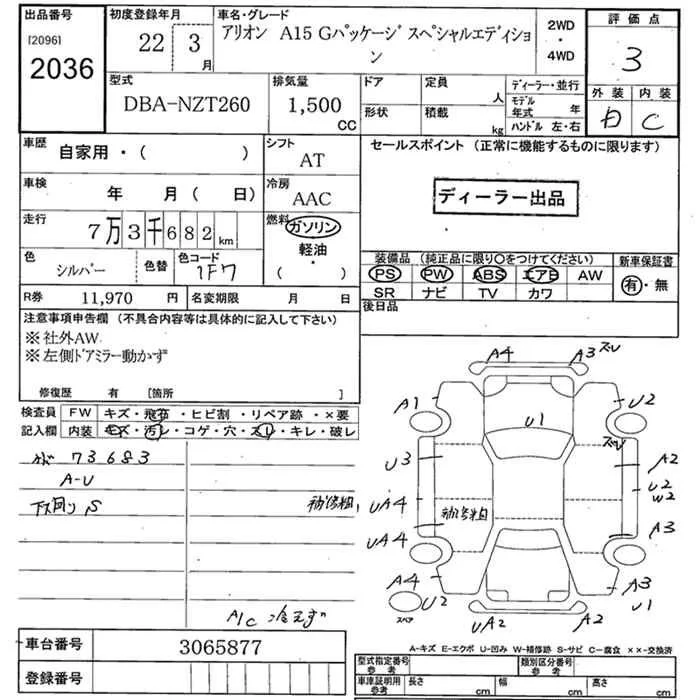 出品番号
[2096]
2036
初度登録年月
22 3
月
車名・グレード
アリオン A15 Gパッケージ スペシャルエディション
2WD
・
4WD
評価点
3
外装 内装
D C
型式
DBA-NZT260
排気量
1,500
CC
ドア
定員
人
形状
積載
kg
ディーラー・並行
モデル年式 年
ハンドル 左・右
車歴
自家用・( )
シフト
AT
セールスポイント (正常に機能するものに限ります)
ディーラー出品
車検
年 月( 日)
冷房
AAC
走行
7万3千682 km
燃料
ガソリン
軽油・
( )
色
シルバー
色替
色コード
1F7
装備品 (純正品に限り○をつけてください)
PS PW ABS エアB AW
SR ナビ TV カワ
新車保証書
有・無
R券 11,970 円
名変期限 月 日
後日品
注意事項申告欄 (不具合内容等は具体的に記入して下さい)
※社外AW
※左側ドアミラー動かず
修復歴 有 [箇所 ]
検査員
記入欄
FW キズ・飛石・ヒビ割・リペア跡・×要
内装 キズ・汚レ・コゲ・穴・スレ・キレ・破レ
73683
A-U
下回り S
補修粗
A/C 冷えず
A4
A3
ズレ
A1
U2
U1
ズレ
U3
A2
UA4
U2
W2
補修粗
UA4
A3
A4
U2
スペア
A3
U1
UA2
A2
A-キズ E-エクボ U-凹み W-補修跡 S-サビ C-腐食 ××-交換済
車台番号 3065877
登録番号
型式指定番号
参考
類別区分番号
参考
車庫証明用
参考
長さ cm
幅 cm
高さ cm